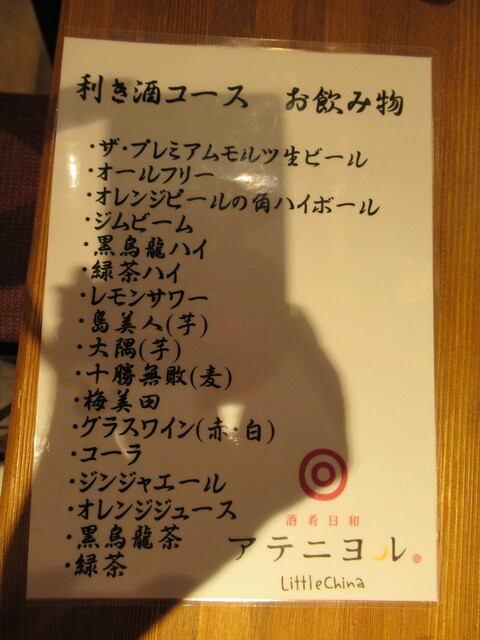 利き酒コース　お飲み物
・ザ・プレミアムモルツ生ビール
・オールフリー
・オレンジピールの角ハイボール
・ジムビーム
・黒烏龍ハイ
・緑茶ハイ
・レモンサワー
・島美人(芋)
・大隅(芋)
・十勝無敗(麦)
・梅美田
・グラスワイン(赤・白)
・コーラ
・ジンジャエール
・オレンジジュース
・黒烏龍茶
・緑茶
酒肴日和
アテニヨル
LittleChina